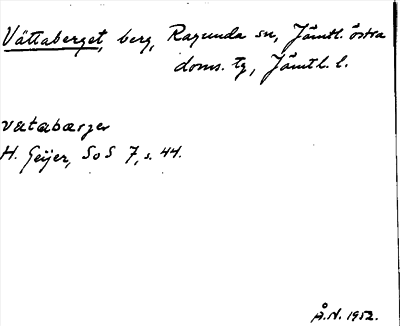 Vättaberget, berg, Ragunda sn, Jämtl. östra
doms. tg, Jämtl. l.
vætabærjeʀ
H. Geijer, SoS 7, s. 44.
Å.N. 1952.